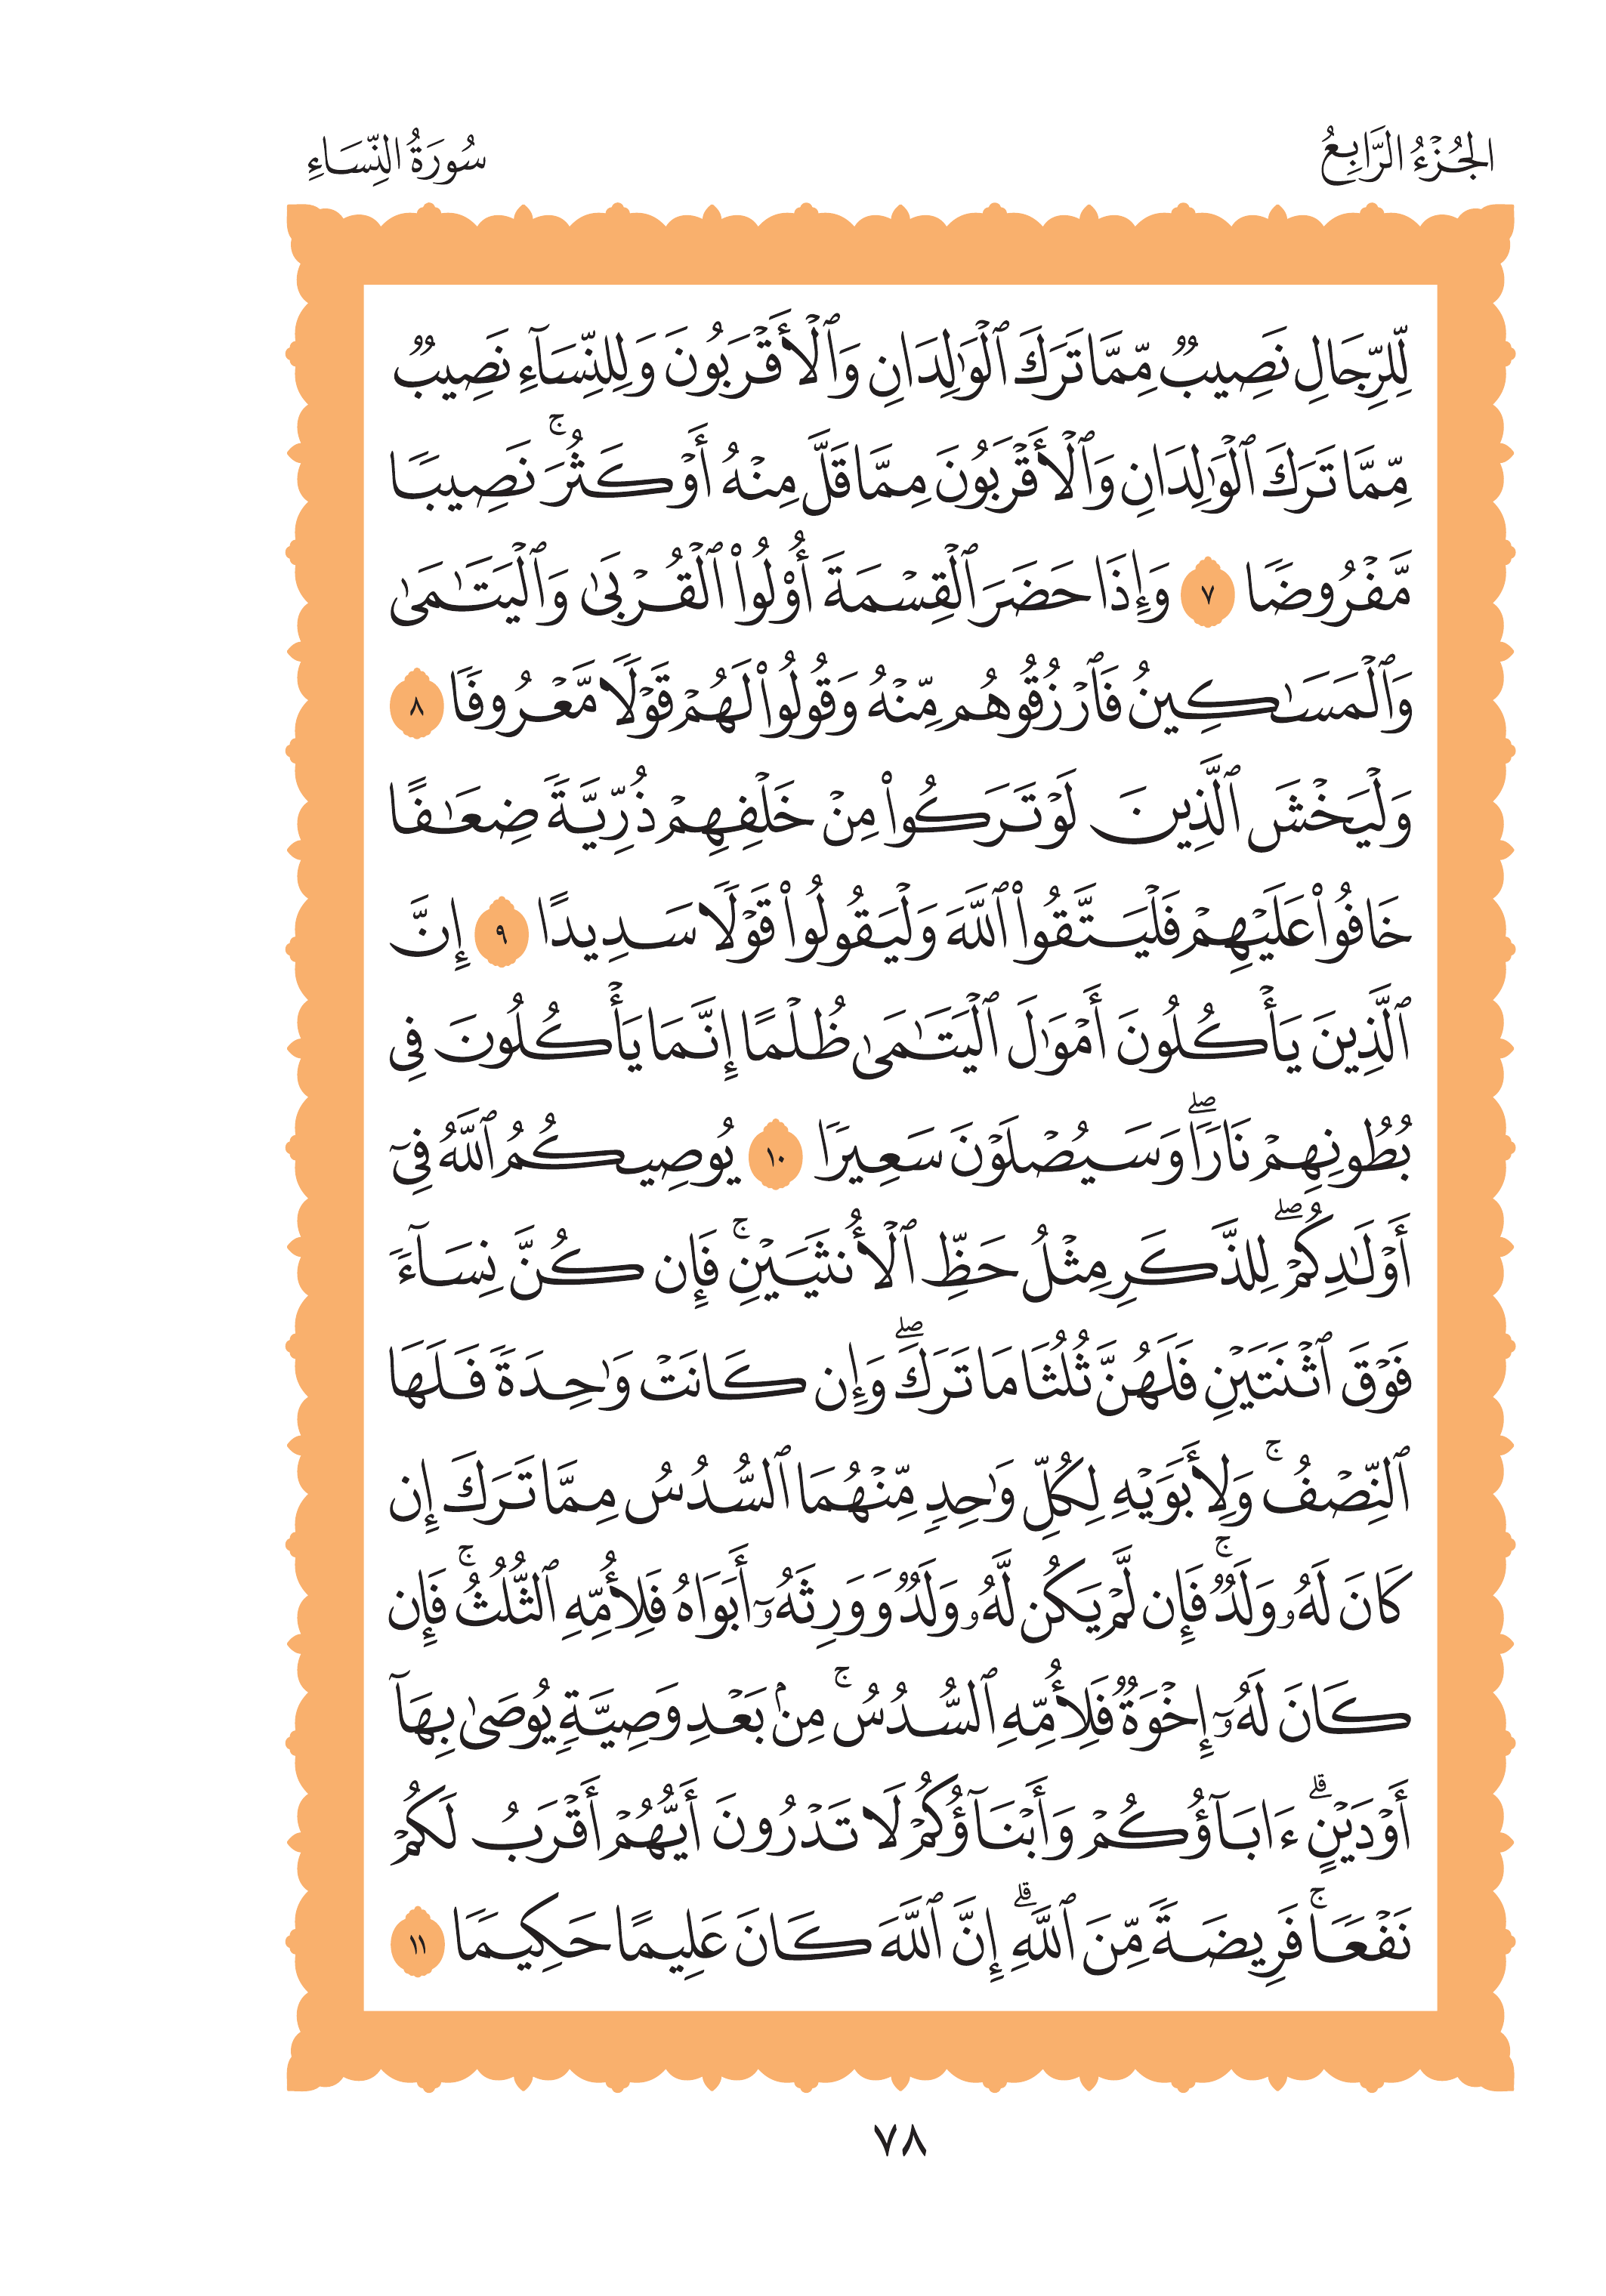 الجُزْءُ الرَّابِعُ
سُورَةُ النِّسَاءِ
لِّلرِّجَالِ نَصِيبٞ مِّمَّا تَرَكَ ٱلۡوَٰلِدَانِ وَٱلۡأَقۡرَبُونَ وَلِلنِّسَآءِ نَصِيبٞ
مِّمَّا تَرَكَ ٱلۡوَٰلِدَانِ وَٱلۡأَقۡرَبُونَ مِمَّا قَلَّ مِنۡهُ أَوۡ كَثُرَۚ نَصِيبٗا
مَّفۡرُوضٗا ٧ وَإِذَا حَضَرَ ٱلۡقِسۡمَةَ أُوْلُواْ ٱلۡقُرۡبَىٰ وَٱلۡيَتَٰمَىٰ
وَٱلۡمَسَٰكِينُ فَٱرۡزُقُوهُم مِّنۡهُ وَقُولُواْ لَهُمۡ قَوۡلٗا مَّعۡرُوفٗا ٨
وَلۡيَخۡشَ ٱلَّذِينَ لَوۡ تَرَكُواْ مِنۡ خَلۡفِهِمۡ ذُرِّيَّةٗ ضِعَٰفًا
خَافُواْ عَلَيۡهِمۡ فَلۡيَتَّقُواْ ٱللَّهَ وَلۡيَقُولُواْ قَوۡلٗا سَدِيدًا ٩ إِنَّ
ٱلَّذِينَ يَأۡكُلُونَ أَمۡوَٰلَ ٱلۡيَتَٰمَىٰ ظُلۡمًا إِنَّمَا يَأۡكُلُونَ فِي
بُطُونِهِمۡ نَارٗاۖ وَسَيَصۡلَوۡنَ سَعِيرٗا ١٠ يُوصِيكُمُ ٱللَّهُ فِيٓ
أَوۡلَٰدِكُمۡۖ لِلذَّكَرِ مِثۡلُ حَظِّ ٱلۡأُنثَيَيۡنِۚ فَإِن كُنَّ نِسَآءٗ
فَوۡقَ ٱثۡنَتَيۡنِ فَلَهُنَّ ثُلُثَا مَا تَرَكَۖ وَإِن كَانَتۡ وَٰحِدَةٗ فَلَهَا
ٱلنِّصۡفُۚ وَلِأَبَوَيۡهِ لِكُلِّ وَٰحِدٖ مِّنۡهُمَا ٱلسُّدُسُ مِمَّا تَرَكَ إِن
كَانَ لَهُۥ وَلَدٞۚ فَإِن لَّمۡ يَكُن لَّهُۥ وَلَدٞ وَوَرِثَهُۥٓ أَبَوَاهُ فَلِأُمِّهِ ٱلثُّلُثُۚ فَإِن
كَانَ لَهُۥٓ إِخۡوَةٞ فَلِأُمِّهِ ٱلسُّدُسُۚ مِنۢ بَعۡدِ وَصِيَّةٖ يُوصَىٰ بِهَآ
أَوۡ دَيۡنٍۗ ءَابَآؤُكُمۡ وَأَبۡنَآؤُكُمۡ لَا تَدۡرُونَ أَيُّهُمۡ أَقۡرَبُ لَكُمۡ
نَفۡعٗاۚ فَرِيضَةٗ مِّنَ ٱللَّهِۗ إِنَّ ٱللَّهَ كَانَ عَلِيمًا حَكِيمٗا ١١
٧٨